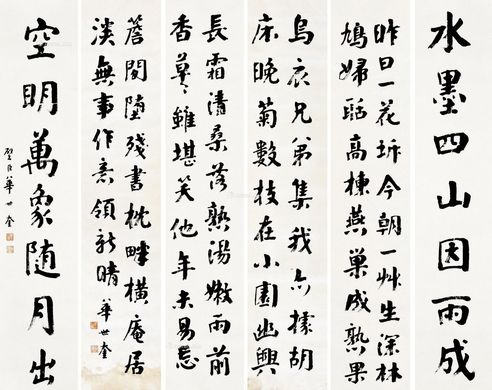 水墨四山因雨成
昨日一花坼今朝一艸生深林
鳩婦聒高棟燕巢成熟果
烏衣兄弟集我亦據胡
床晚菊數枝在小園幽興
長霜清桑落熟湯嫩雨前
香草〻雖堪笑他年未易忘
簷間墮殘書枕畔橫庵居
淡無事作意領新晴
華世奎
空明萬象随月出
璧臣華世奎